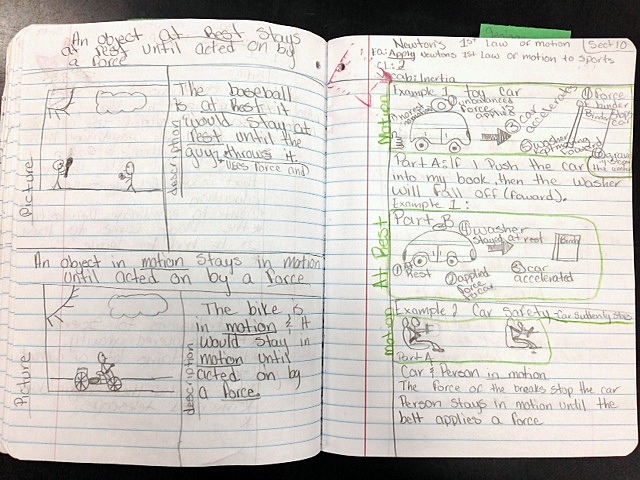 An object at Rest Stays
at rest until acted on by
a force
Picture
description
The baseball
is at Rest it
would stay at
rest until the
guy throws it
(uses force and)
An object in motion stays in motion
until acted on by a force
Picture
description
The bike is
in motion & it
would stay in
motion until
acted on by
a force.
Newton's 1st Law of motion
Sect 10
EQ: Apply Newtons 1st Law of motion to sports
CL: 2
Vocab: Inertia
Motion
Example 1 toy car
① unbalanced
force is
applied
③ car
accelerates
④ Force
of binder
⑤ washer
kept moving
forward
Part A: If I Push the car
into my book, then the washer
will fall off (foward).
Example 1:
At Rest
Part B
④ washer
stayed at rest
① Rest
② applied
force
to car
③ car
accelerated
Motion
Example 2 Car Safety - Car suddenly stops
Part A
Car & Person in motion
The force of the breaks stop the car
Person stays in motion until the
belt applies a force